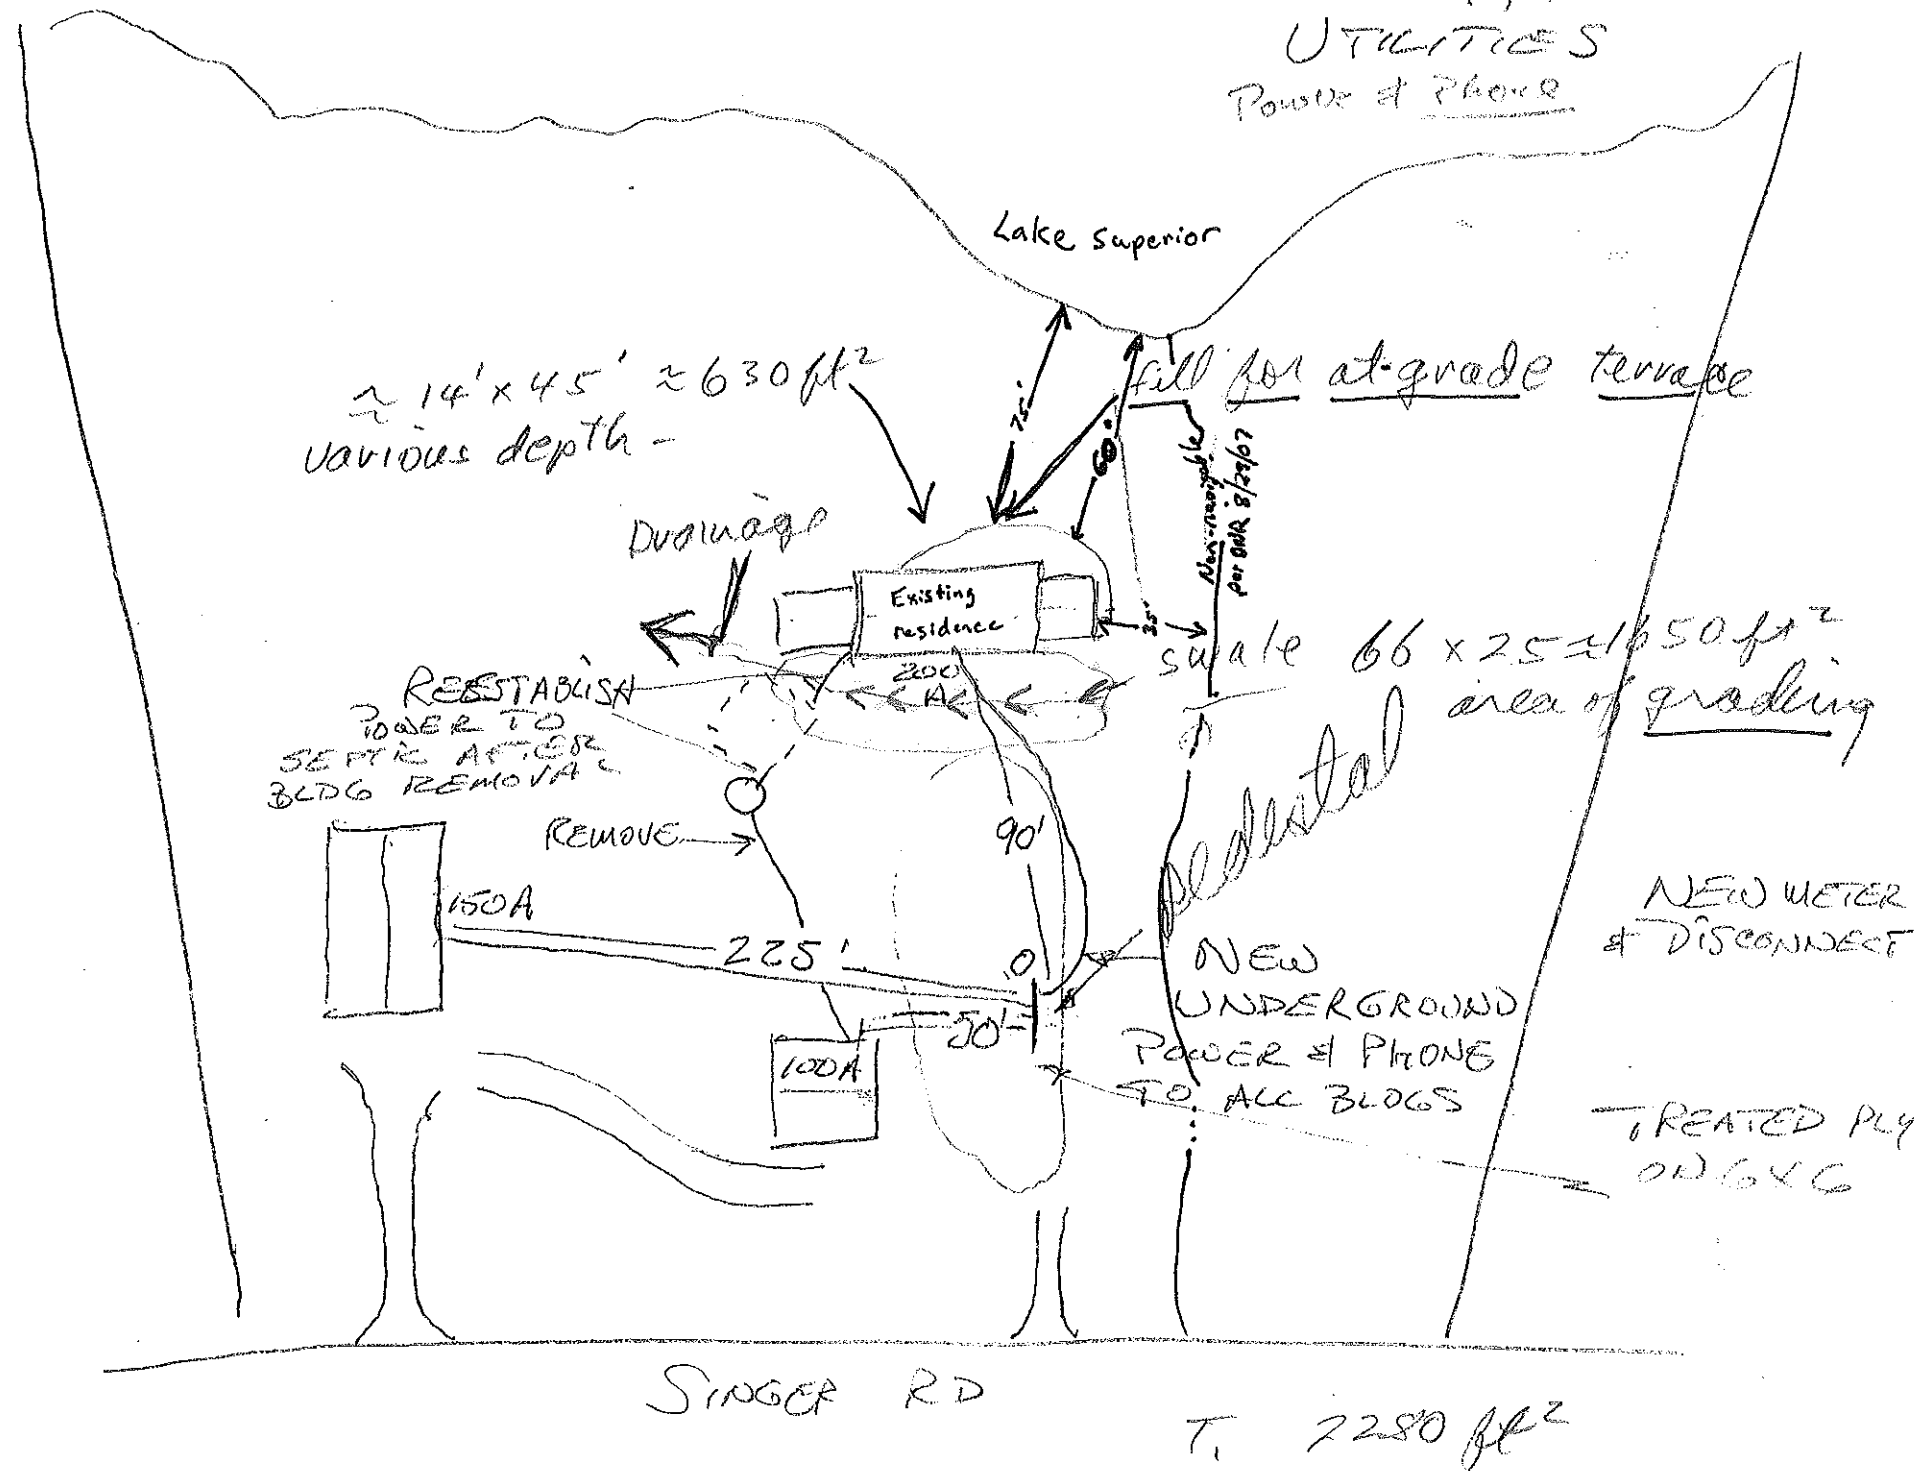 UTILITIES
Power & Phone
Lake Superior
≈ 14' x 45' ≈ 630 ft²
various depth -
fill for at-grade terrace
75'
60'
Non-navigable
per DNR 8/29/07
Drainage
Existing
residence
35'
swale 66 x 25 ≈ 1650 ft²
area of grading
200
A
REESTABLISH
POWER TO
SEPTIC AFTER
BLDG REMOVAL
REMOVE
90'
pedestal
NEW METER
& DISCONNECT
150A
225'
NEW
UNDERGROUND
POWER & PHONE
TO ALL BLDGS
50'
100A
TREATED PLY
ON 6X6
SINGER RD
T. 2280 ft²